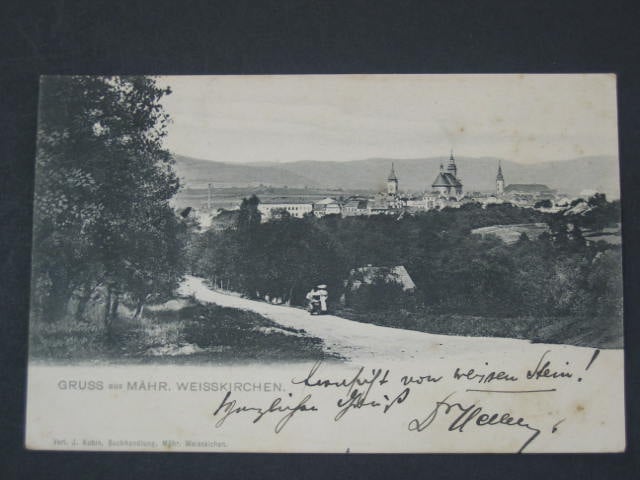 GRUSS aus MÄHR. WEISSKIRCHEN.
von weisen Stein!
Herzlichen Gruß
Dr
Verl. J. Kubin, Buchhandlung, Mähr. Weisskirchen.